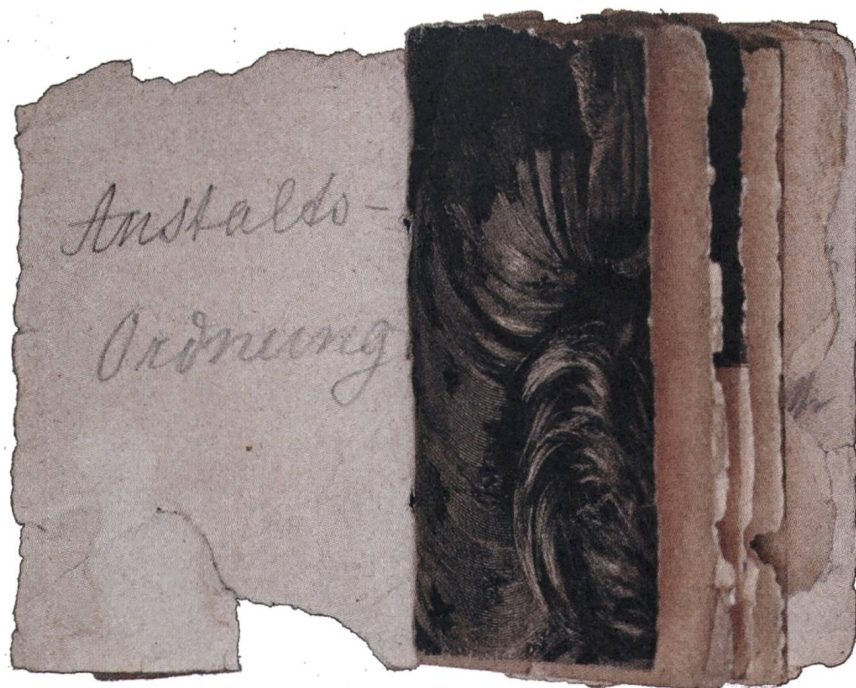 Anstalts-
Ordnung